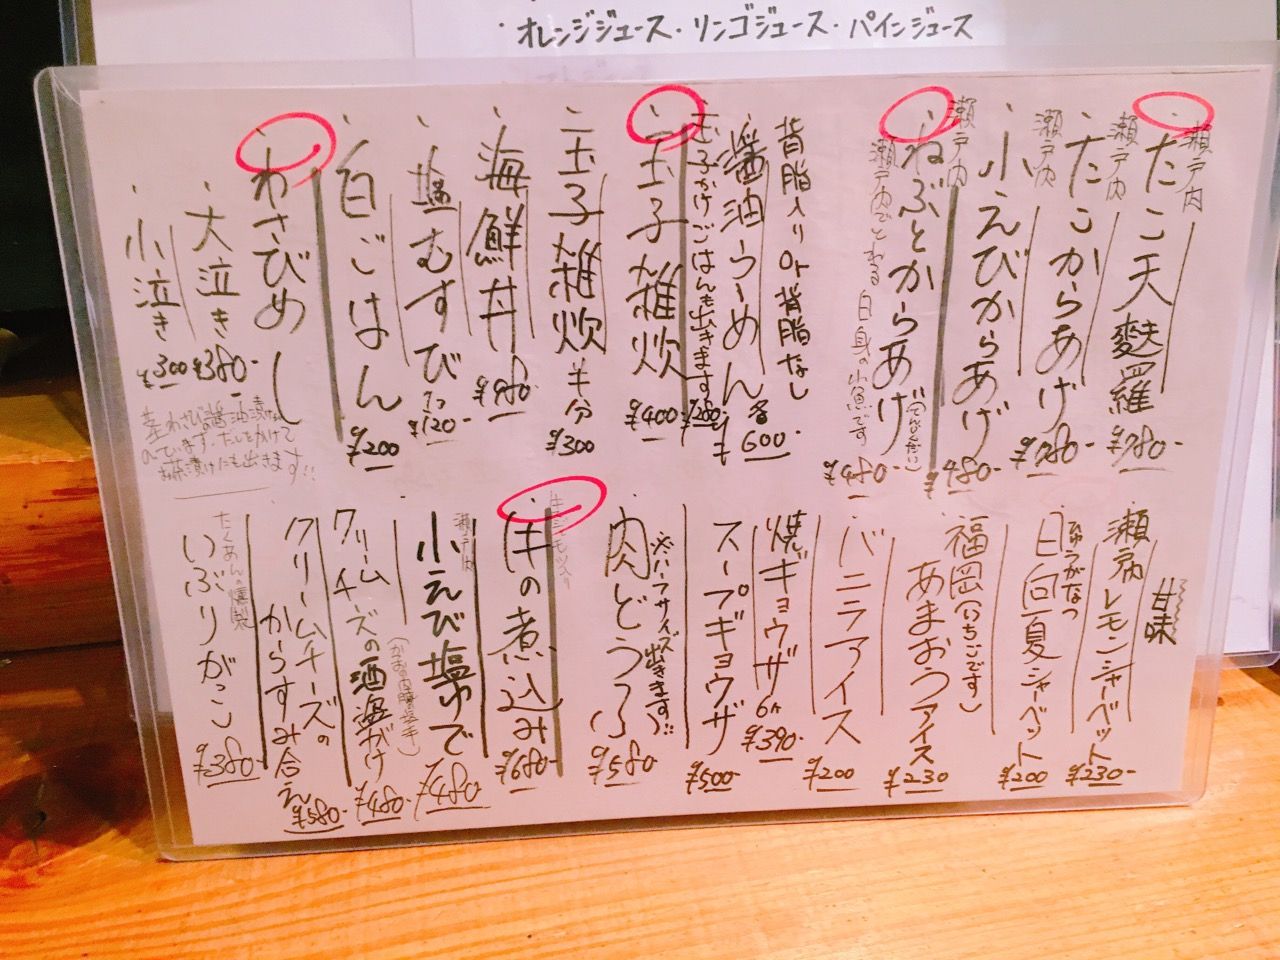 ・オレンジジュース・リンゴジュース・パインジュース
瀬戸内
・たこ天麩羅 ¥780-
瀬戸内
・たこからあげ ¥780-
瀬戸内
・小えびからあげ ¥480-
瀬戸内
・ねぶとからあげ ¥480-
(てんじくだい)
瀬戸内でとれる白身の小魚です
背脂入りor背脂なし
・醤油らーめん 各¥600-
玉子かけごはんも出きます ¥280-
・玉子雑炊 ¥400
・玉子雑炊 半分 ¥300
・海鮮丼 ¥980-
・塩むすび 1コ ¥120-
・白ごはん ¥200
・わさびめし
・大泣き ¥380-
・小泣き ¥300
茎わさび醤油漬け
のています。だしをかけて
お茶漬けにも出きます!!
甘味
瀬戸内レモンシャーベット ¥230-
(ひゅうがなつ)
日向夏シャーベット ¥200
福岡(いちごです)
あまおうアイス ¥230
バニラアイス ¥200
・焼ギョウザ 6ヶ ¥390-
スープギョウザ ¥500-
※ハーフサイズ出きます!!
・肉どうふ ¥580
・牛の煮込み ¥680-
瀬戸内
・小えび塩ゆで ¥480-
クリームチーズの酒盗がけ ¥480-
クリームチーズの
からすみ合え ¥580-
たくあんの燻製
いぶりがっこ ¥380-